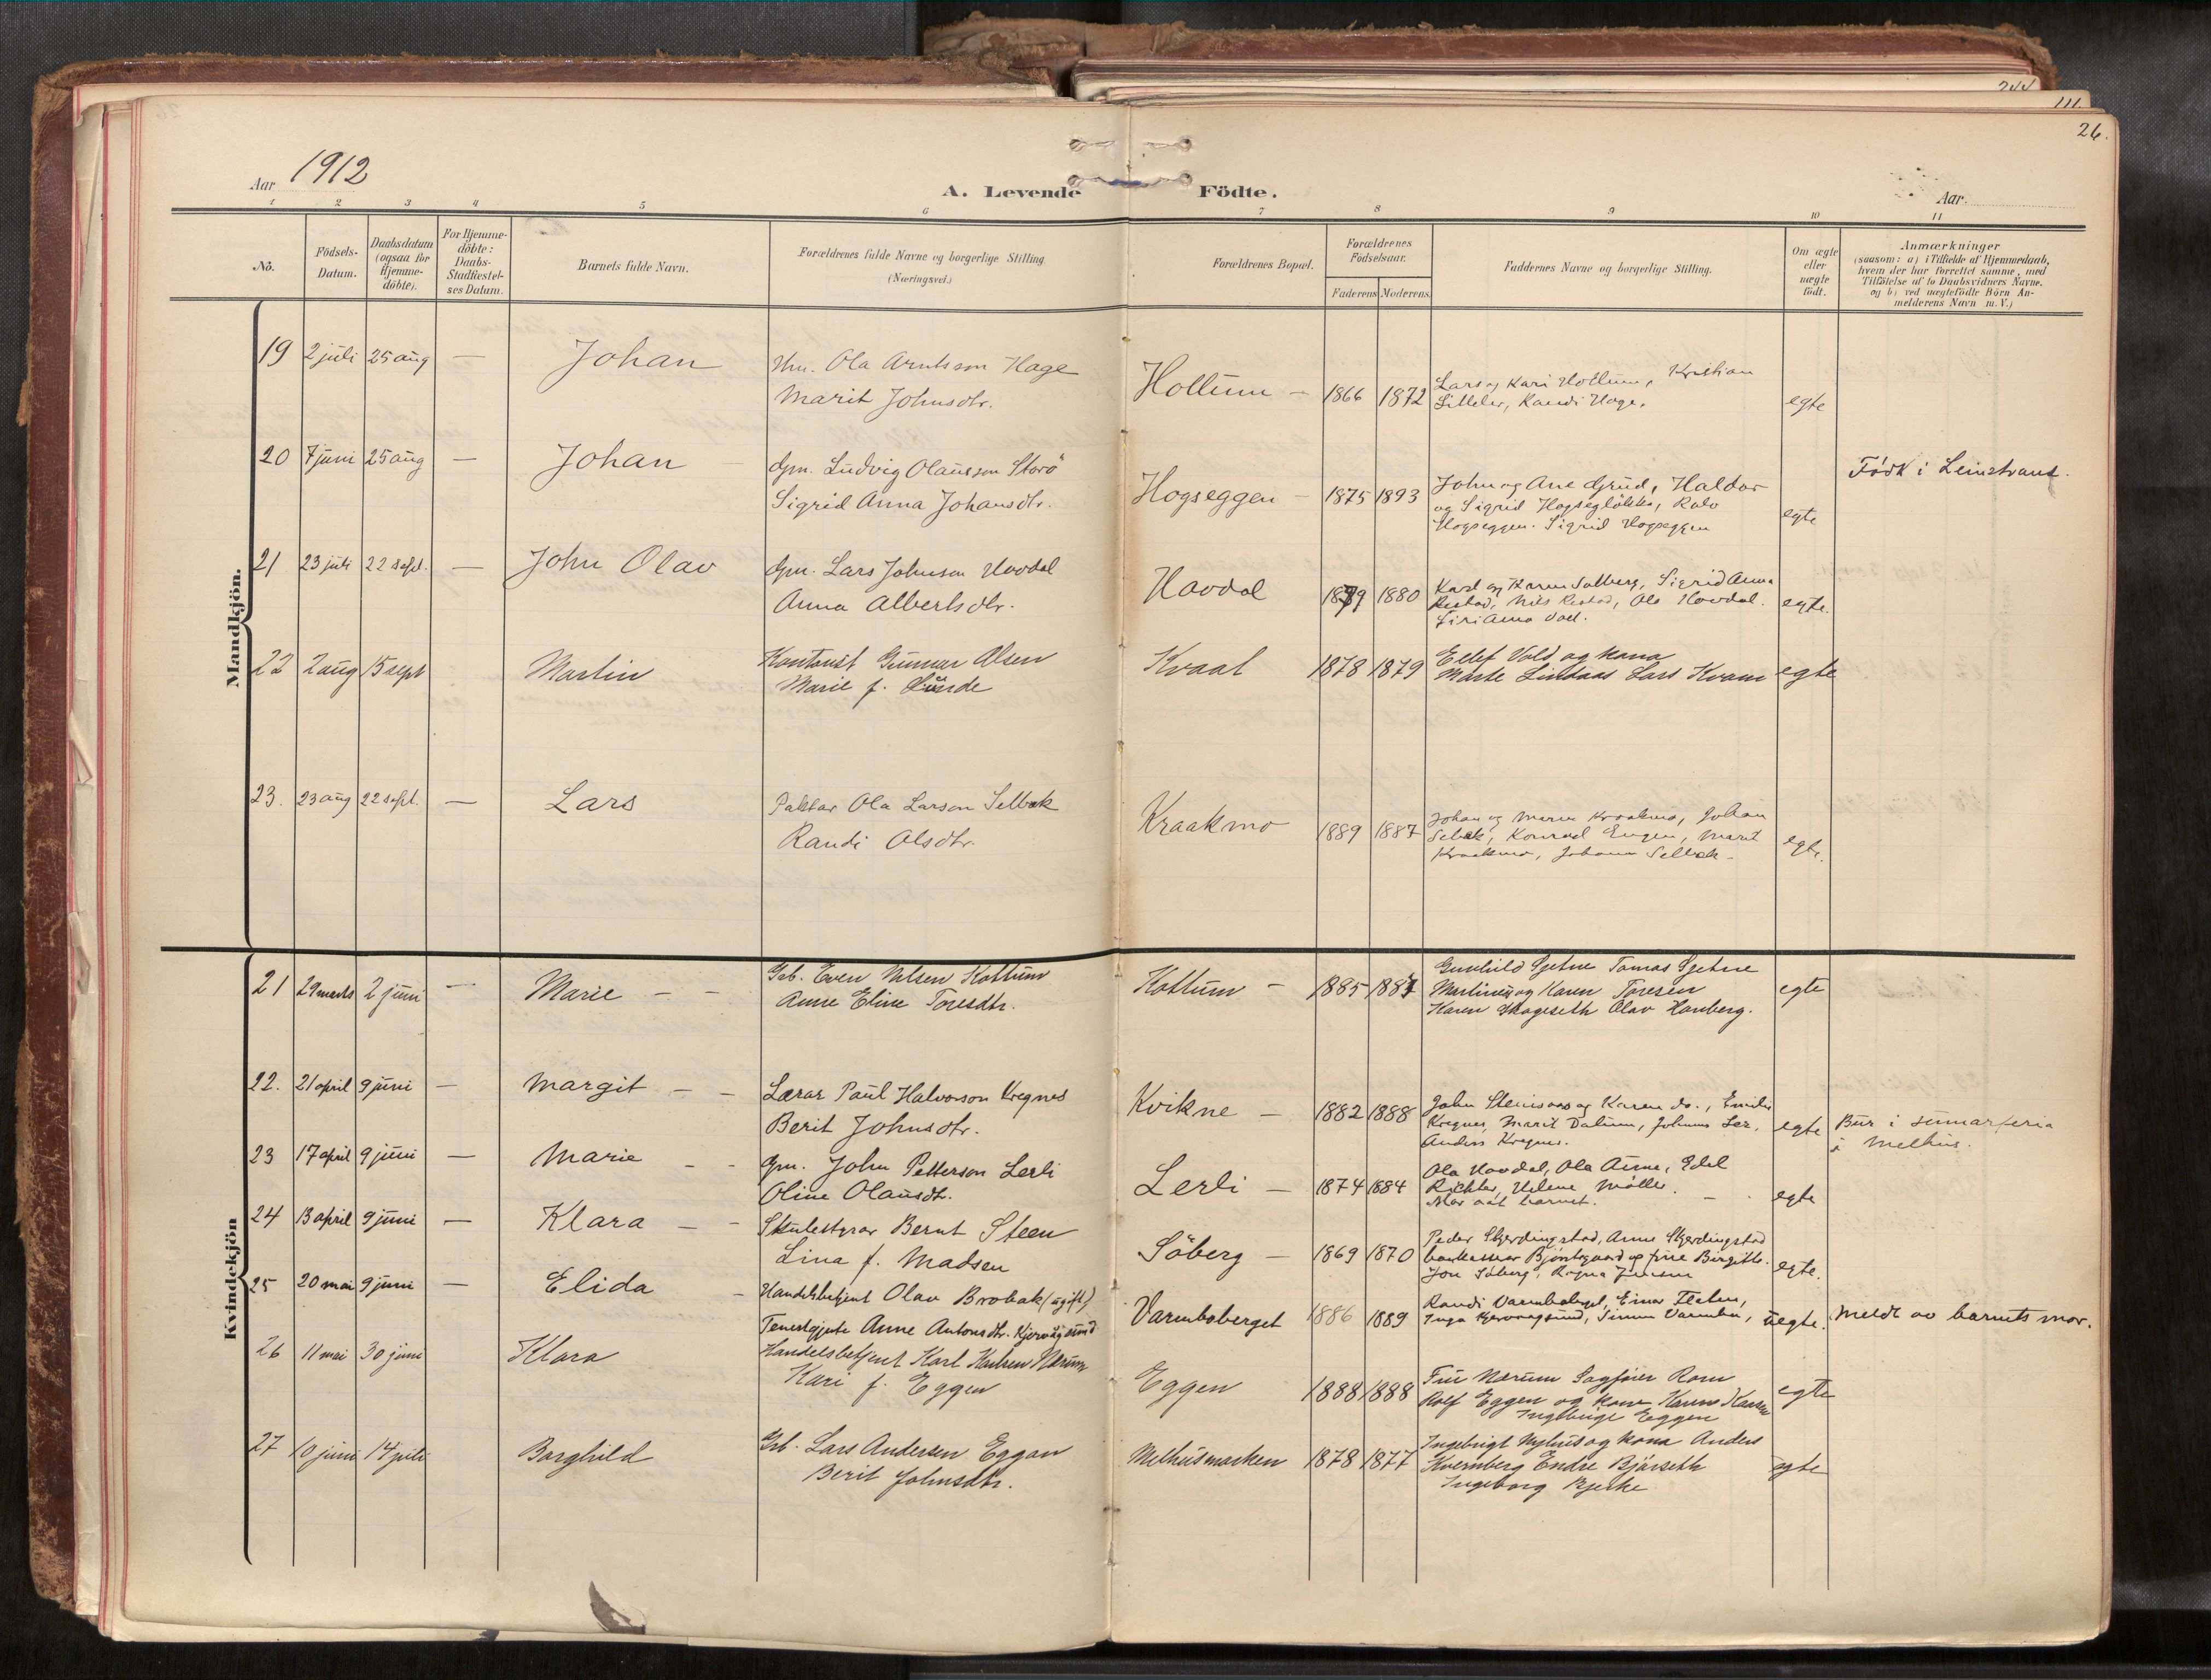 244
111.
26.
Aar 1912
A. Levende Födte.
Aar.
1 2 3 4 5 6 7 8 9 10 11
No.
Födsels-
Datum.
Daabsdatum
(ogsaa for
Hjemme-
döbte).
For Hjemme-
döbte:
Daabs-
Stadfæstel-
ses Datum.
Barnets fulde Navn.
Forældrenes fulde Navne og borgerlige Stilling
(Næringsvei.)
Forældrenes Bopæl.
Forældrenes
Födselsaar.
Faderens Moderens
Faddernes Navne og borgerlige Stilling.
Om ægte
eller
uægte
födt.
Anmærkninger
(saasom: a) i Tilfælde af Hjemmedaab,
hvem der har forrettet samme, med
Tilföielse af to Daabsvidners Navne.
og b) ved uægtefödte Börn An-
melderens Navn m. V.)
Mandkjön.
19 2 juli 25 aug — Johan
Hm. Ola Arntsson Hage
Marit Johnsdtr.
Hollum — 1866 1872
Lars og Kari Hollum, Kristian
Litleler, Randi Hage.
egte
20 7 juni 25 aug — Johan
Gm. Ludvig Olausson Storö
Sigrid Anna Johansdtr.
Hogseggen — 1875 1893
John og Ane Grud, Haldor
og Sigrid Hogseglökke, Ralv
Hogseggen. Sigrid Hogseggen
egte
Född i Leinstrand.
21 23 juli 22 sept. — John Olav
Gm. Lars Johnson Hovdal
Anna Albertsdtr.
Hovdal 1879 1880
Karl og Karen Solberg, Sigrid Anna
Restad, Nils Restad, Ola Hovdal.
egte.
22 2 aug 15 sept Martin
Kontorist Gunnar Olsen
Marie f. Lunde
Kvaal 1878 1879
Ellef Vold og kona
Marte Lindaas Lars Kvam
egte
23. 23 aug 22 sept. — Lars
Paktar Ola Larson Selbæk
Randi Olsdtr.
Kraakmo 1889 1887
Johan og Maren Kraakmo, Johan
Selbæk, Konrad Engen, Marit
Kraakmo, Johanna Selbæk.
egte.
Kvindekjön
21 29 marts 2 juni — Marie — —
Grb. Even Nilsen Kottum
Anne Eline Toresdtr.
Kottum — 1885 1887
Gunhild Gjetne Tomas Gjetne
Martines og Karen Toresen
Karen Skogeseth Olav Hamberg.
egte
22. 21 april 9 juni — Margit — —
Lærar Paul Halvorson Kregnes
Berit Johnsdtr.
Kvikne — 1882 1888
John Stenisaas og Karen do., Emilie
Kregnes, Marit Dalum, Johannes Ler,
Anders Kregnes.
egte
Bur i sumarferia
i Melhus.
23 17 april 9 juni — Marie — —
Gm. John Petterson Lerli
Oline Olausdtr.
Lerli — 1874 1884
Ola Hovdal, Ola Aune, Edel
Richter, Helene Møller.
Mor aat barnet.
egte
24 13 april 9 juni — Klara — —
Skulestyrar Bernt Steen
Lina f. Madsen
Söberg — 1869 1870
Peder Skjerdingstad, Anne Skjerdingstad
bankkasserar Bjöntegaard og frue Birgitte.
Jon Söberg, Ragna Jensen
egte.
25 20 mai 9 juni — Elida —
Handelsbetjent Olav Brobak (ugift)
Tenestgjente Anne Antonsdtr. Kjervaagsund
Varmboberget 1886 1889
Randi Varmboberget, Einar Flaten,
Inga Kjervaagsund, Simen Varmbo,
uegte.
Meldt av barnets mor.
26 11 mai 30 juni Klara
Handelsbetjent Karl Karlsen Nærum
Kari f. Eggen
Eggen 1888 1888
Fru Nærum Sagfører Rom
Rolf Eggen og kone Karen Kaasen
Ingeborg Eggen
egte
27 10 juni 14 juli Borghild
Grb. Lars Andersen Eggan
Berit Johnsdtr.
Melhusmarken 1878 1877
Ingebrigt Nyhus og kona Anders
Kvernberg Endre Bjørseth
Ingeborg Bjerke
egte